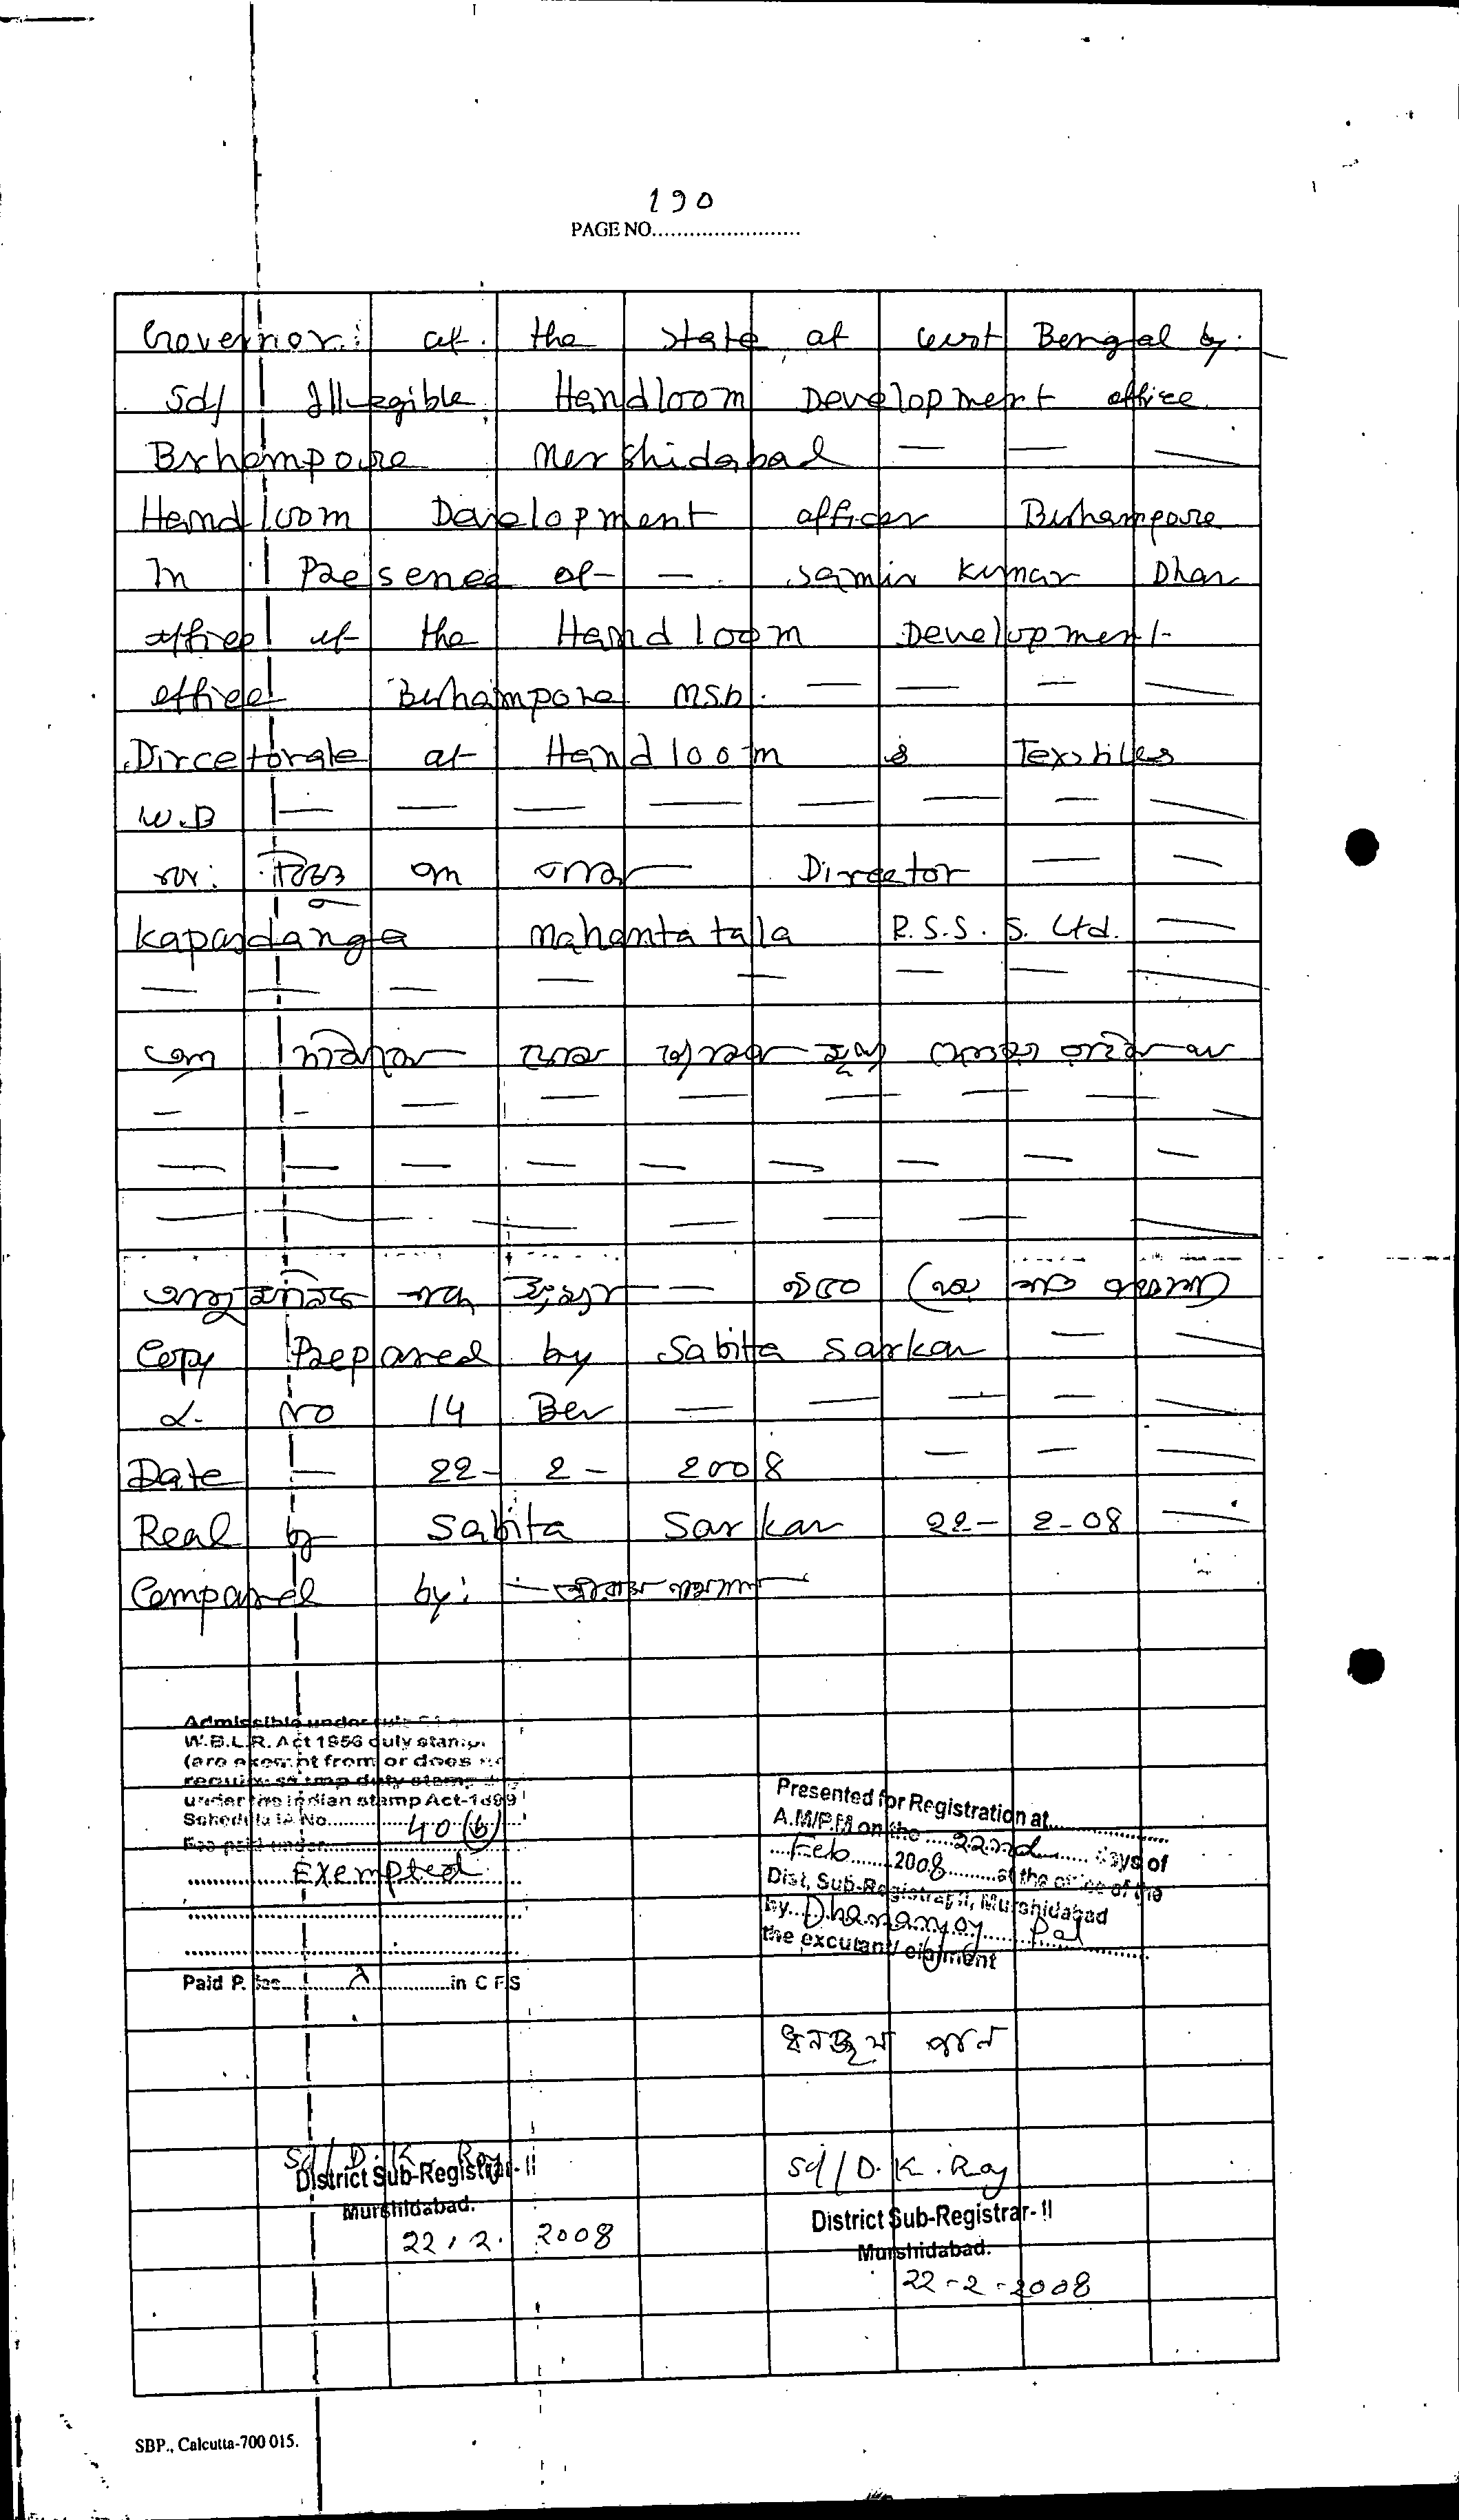 190
PAGE NO........................
Governor: of the State of West Bengal by.
Sd/ Illegible Handloom Development office
Brhampore Murshidabad — — —
Handloom Development officer Burhampore
In Presence of - — Samir Kumar Dhar
office of the Handloom Development
office Burhampore MSD. — — — —
Dircetorate of Handloom & Textiles
W.B — — — — — — — —
Director — —
Kapasdanga Mahantatala R.S.S.S. Ltd. —
Copy Prepared by Sabita Sarkar — —
L. No 14 Ber — — — — —
Date — 22 - 2 - 2008 — — —
Read by Sabita Sarkar 22 - 2 - 08 —
Compared by:
Admissible under rule
W.B.L.R. Act 1956 duly stamp.
(are exempt from or does not
require stamp duty stamp
under the Indian stamp Act-1899
Schedule IA No.......40 (b)
Fee paid under
Exempted
Paid P. fee.......... in C F S
Presented for Registration at..........
A.M/P.M on the ..... 22nd ..... days of
Feb 2008 at the office of the
Dist, Sub-Registrar II, Murshidabad
by. Dhananjoy Pal
the excutant/
ধনঞ্জয় পাল
Sd/ D. K. Roy
District Sub-Registrar- II
Murshidabad.
22.2. 2008
Sd/ D. K. Roy
District Sub-Registrar- II
Murshidabad.
22-2-2008
SBP., Calcutta-700 015.